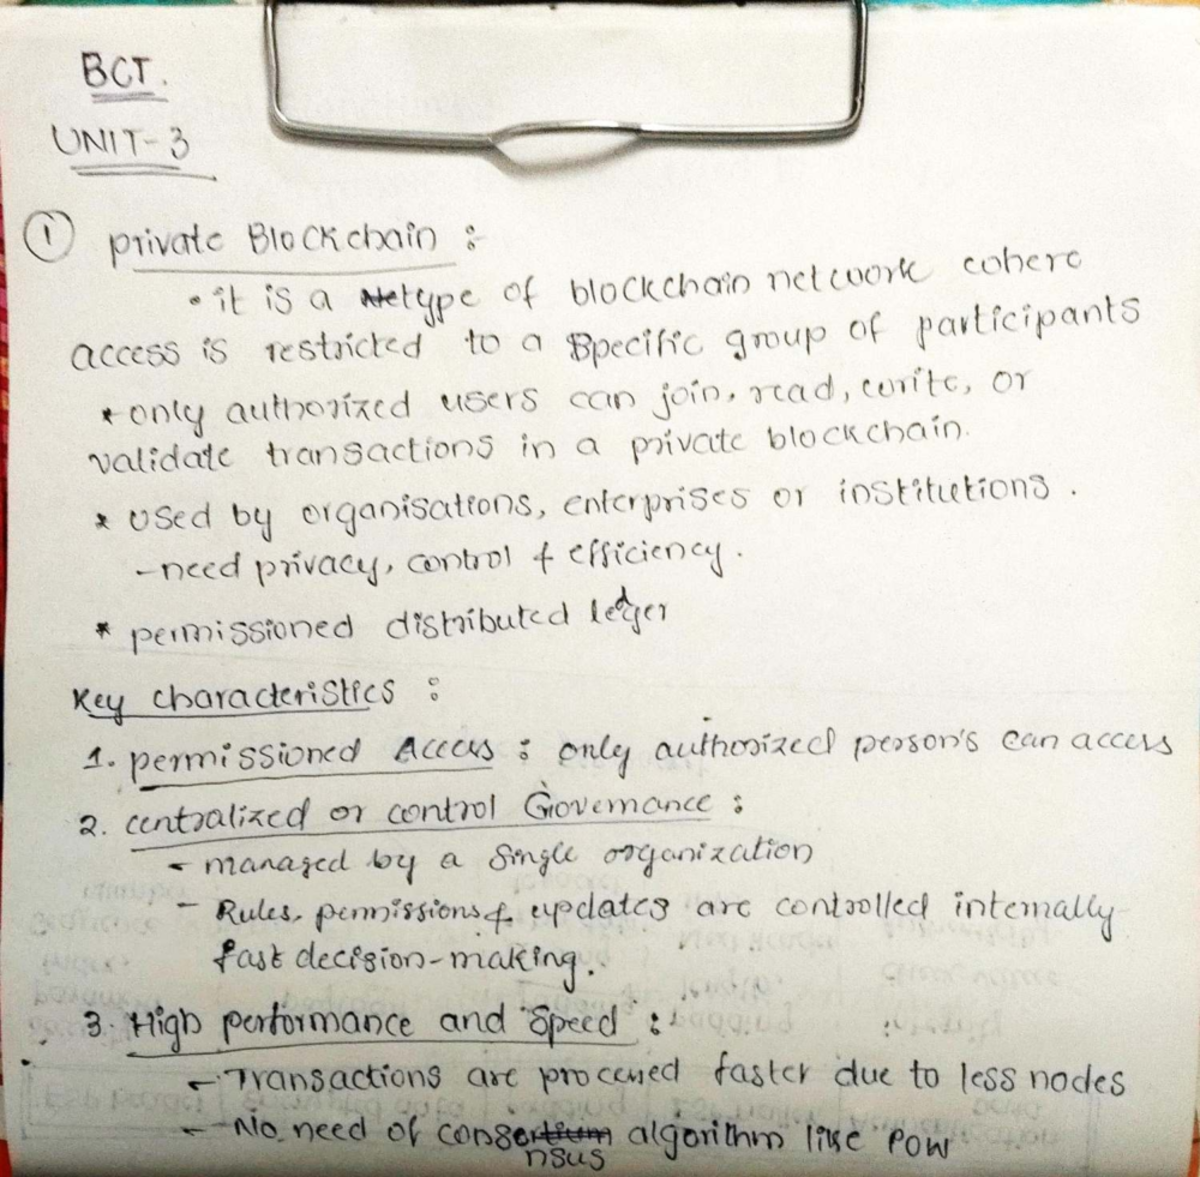 BCT.
UNIT-3
① private Blockchain :-
• it is a type of blockchain network where
access is restricted to a specific group of participants
* only authorized users can join, read, write, or
validate transactions in a private blockchain.
* Used by organisations, enterprises or institutions.
- need privacy, control & efficiency.
* permissioned distributed ledger
Key characteristics :
1. permissioned Access : only authorized person's can access
2. centralized or control Governance :
- managed by a single organization
- Rules, permissions & updates are controlled internally
fast decision-making.
3. High performance and Speed :
- Transactions are processed faster due to less nodes
- No need of consensus algorithm like POW